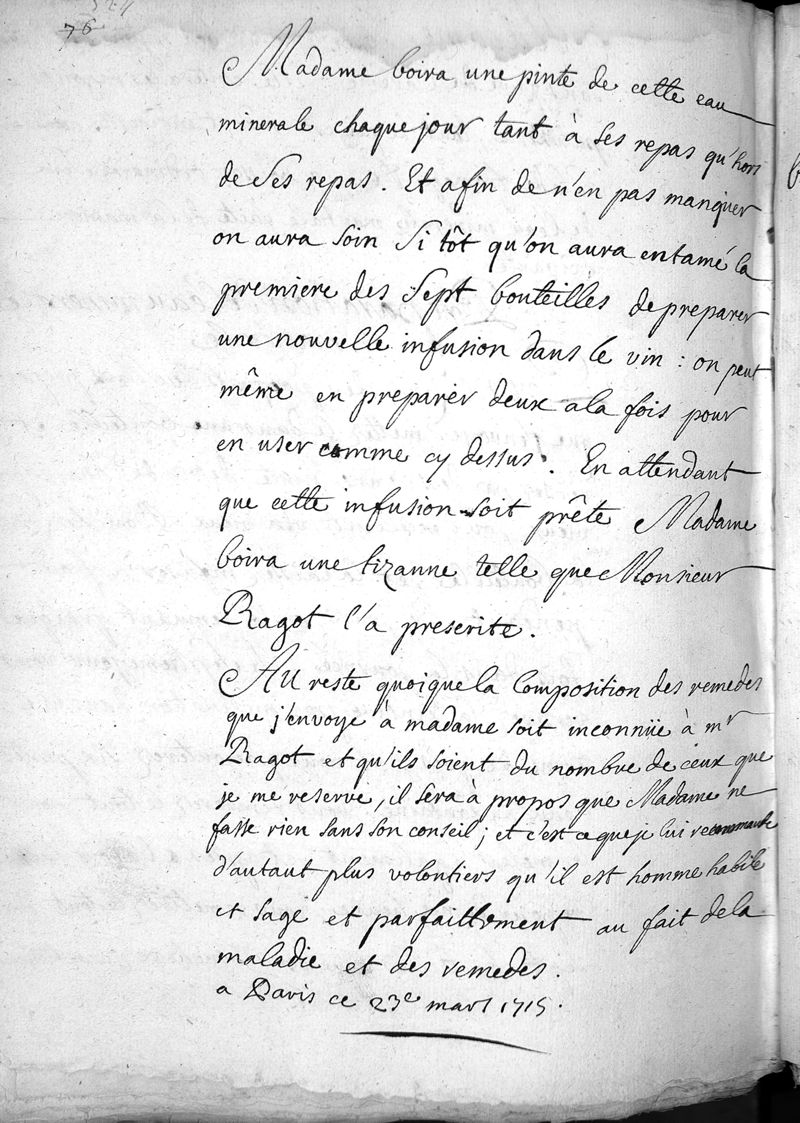 76
Madame boira une pinte de cette eau
minerale chaque jour tant à ses repas qu'hors
de ses repas. Et afin de n'en pas manquer
on aura soin si tôt qu'on aura entamé la
premiere des sept bouteilles de preparer
une nouvelle infusion dans le vin : on peut
même en preparer deux a la fois pour
en user comme cy dessus. En attendant
que cette infusion soit prête Madame
boira une tizanne telle que Monsieur
Ragot l'a prescrite.
Au reste quoique la composition des remedes
que j'envoye à madame soit inconnüe à mr
Ragot et qu'ils soient du nombre de ceux que
je me reserve, il sera à propos que Madame ne
fasse rien sans son conseil ; et c'est ce que je lui recommande
d'autant plus volontiers qu'il est homme habile
et sage et parfaittement au fait de la
maladie et des remedes.
a Paris ce 23e mars 1715.